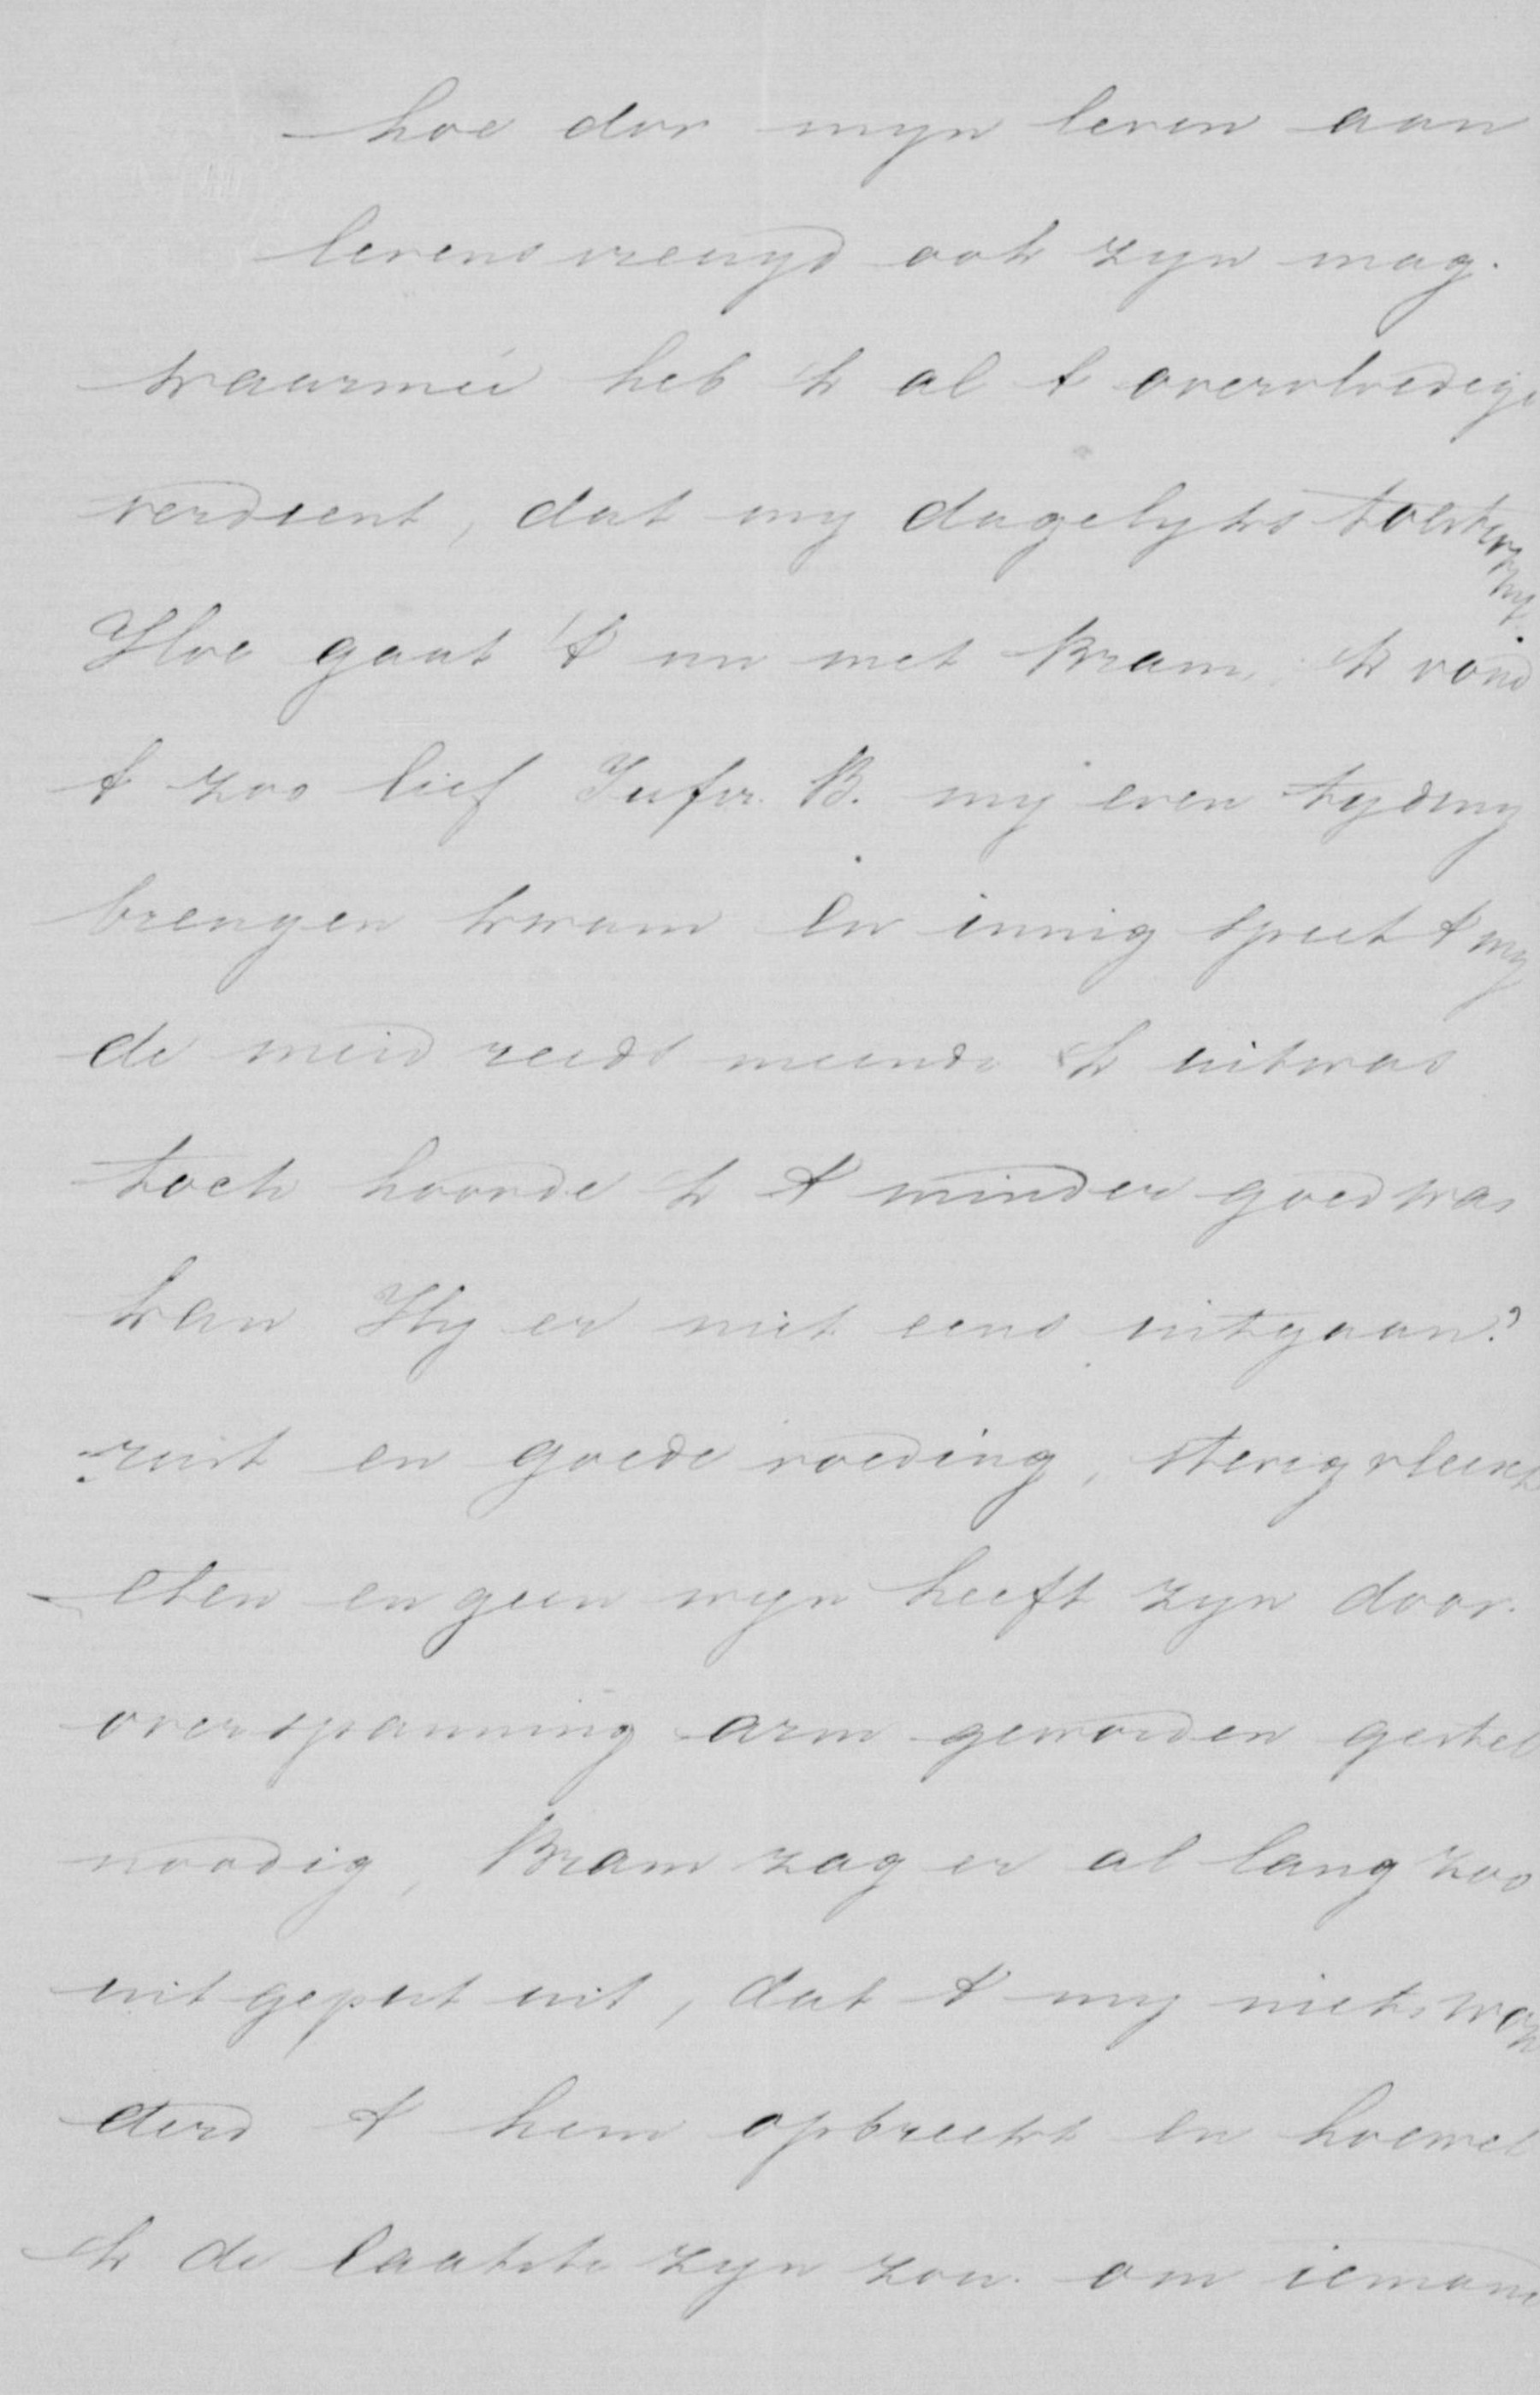 hoe dor mijn leven aan
levensvreugd ook zyn mag.
waarmeê heb 'k al 't overvloedige
verdient, dat my dagelyks
Hoe gaat 't nu met Bram, ik vond
't zoo lief Jufvr. B. mij even tyding
brengen kwam en innig speet 't my
de meid reeds meende ik uitwas
toch hoorde 'k 't minder goed was
kan Hy er niet eens uitgaan?
rust en goede voeding, stevig vleesch
eten en geen wyn heeft zyn door
overspanning arm geworden gestel
noodig, Bram zag er al lang zoo
uitgeput uit, dat 't my niets won
derd 't hem opbreekt en hoewel
ik de laatste zyn zou om iemand